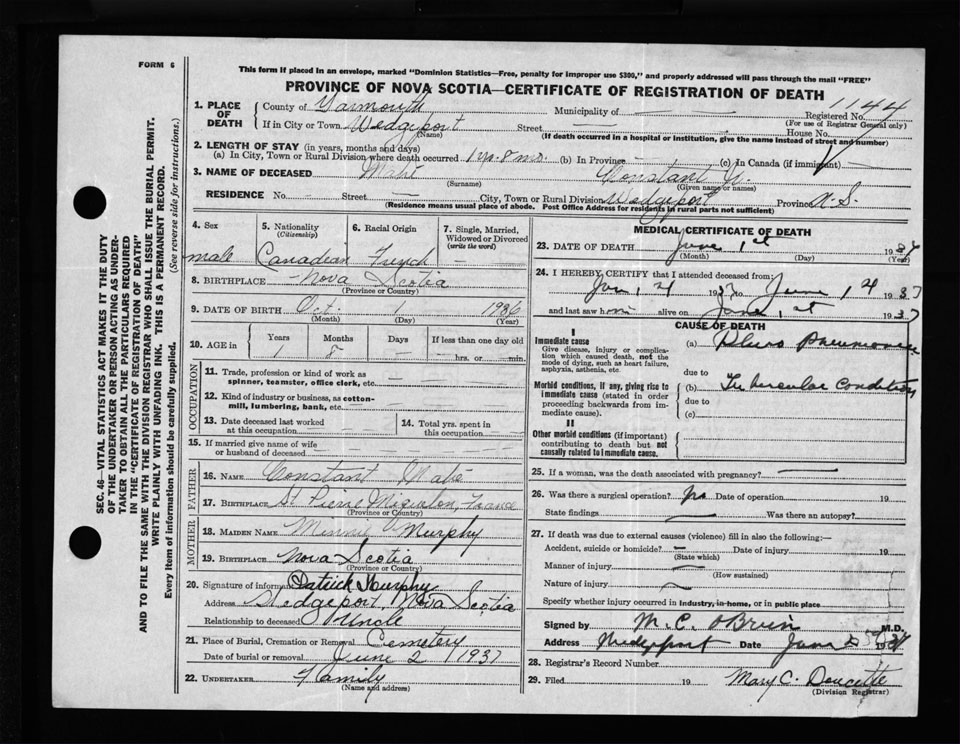 FORM 6
This form if placed in an envelope, marked "Dominion Statistics—Free, penalty for improper use $300," and properly addressed will pass through the mail "FREE"
PROVINCE OF NOVA SCOTIA—CERTIFICATE OF REGISTRATION OF DEATH
1. PLACE OF DEATH
County of Yarmouth Municipality of — Registered No. 1144
(For use of Registrar General only)
If in City or Town Wedgeport Street — House No.
(Name) (If death occurred in a hospital or institution, give the name instead of street and number)
2. LENGTH OF STAY (in years, months and days)
(a) In City, Town or Rural Division where death occurred 1 yr. 8 mo. (b) In Province — (c) In Canada (if immigrant) —
3. NAME OF DECEASED Mahé Constant
(Surname) (Given name or names)
RESIDENCE No. — Street — City, Town or Rural Division Wedgeport Province N.S.
(Residence means usual place of abode. Post Office Address for residents in rural parts not sufficient)
4. Sex male
5. Nationality (Citizenship) Canadian
6. Racial Origin French
7. Single, Married, Widowed or Divorced (write the word) —
8. BIRTHPLACE Nova Scotia
(Province or Country)
9. DATE OF BIRTH Oct. 1 1936
(Month) (Day) (Year)
10. AGE in Years 1 Months 8 Days — If less than one day
— hrs. or — min.
OCCUPATION
11. Trade, profession or kind of work as spinner, teamster, office clerk, etc. —
12. Kind of industry or business, as cotton-mill, lumbering, bank, etc. —
13. Date deceased last worked at this occupation —
14. Total yrs. spent in this occupation —
15. If married give name of wife or husband of deceased —
FATHER
16. NAME Constant Mahé
17. BIRTHPLACE St. Pierre Miquelon, France
(Province or Country)
MOTHER
18. MAIDEN NAME Minnie Murphy
19. BIRTHPLACE Nova Scotia
(Province or Country)
20. Signature of informant Patrick Murphy
Address Wedgeport, Nova Scotia
Relationship to deceased Uncle
21. Place of Burial, Cremation or Removal Cemetery
Date of burial or removal June 2 1937
22. UNDERTAKER Family
(Name and address)
MEDICAL CERTIFICATE OF DEATH
23. DATE OF DEATH June 1st 1937
(Month) (Day) (Year)
24. I HEREBY CERTIFY that I attended deceased from:
1937 to June 1 1937
and last saw him alive on June 1st 1937
CAUSE OF DEATH
I
Immediate cause
Give disease, injury or complication which caused death, not the mode of dying, such as heart failure, asphyxia, asthenia, etc.
(a) Pleuro Pneumonia
due to
Morbid conditions, if any, giving rise to immediate cause (stated in order proceeding backwards from immediate cause).
(b) Tubercular Condition
due to
(c)
II
Other morbid conditions (if important) contributing to death but not causally related to immediate cause.
25. If a woman, was the death associated with pregnancy? —
26. Was there a surgical operation? no Date of operation 19
State findings — Was there an autopsy?
27. If death was due to external causes (violence) fill in also the following:—
Accident, suicide or homicide? — Date of injury 19
(State which)
Manner of injury —
(How sustained)
Nature of injury —
Specify whether injury occurred in industry, in home, or in public place
Signed by M. C. O'Brien M.D.
Address Wedgeport Date June
28. Registrar's Record Number
29. Filed 19 Mary C. Doucette
(Division Registrar)
SEC. 46—VITAL STATISTICS ACT MAKES IT THE DUTY
OF THE UNDERTAKER OR PERSON ACTING AS UNDER-
TAKER TO OBTAIN ALL THE PARTICULARS REQUIRED
IN THE "CERTIFICATE OF REGISTRATION OF DEATH"
AND TO FILE THE SAME WITH THE DIVISION REGISTRAR WHO SHALL ISSUE THE BURIAL PERMIT.
WRITE PLAINLY WITH UNFADING INK. THIS IS A PERMANENT RECORD.
Every item of information should be carefully supplied. (See reverse side for instructions.)